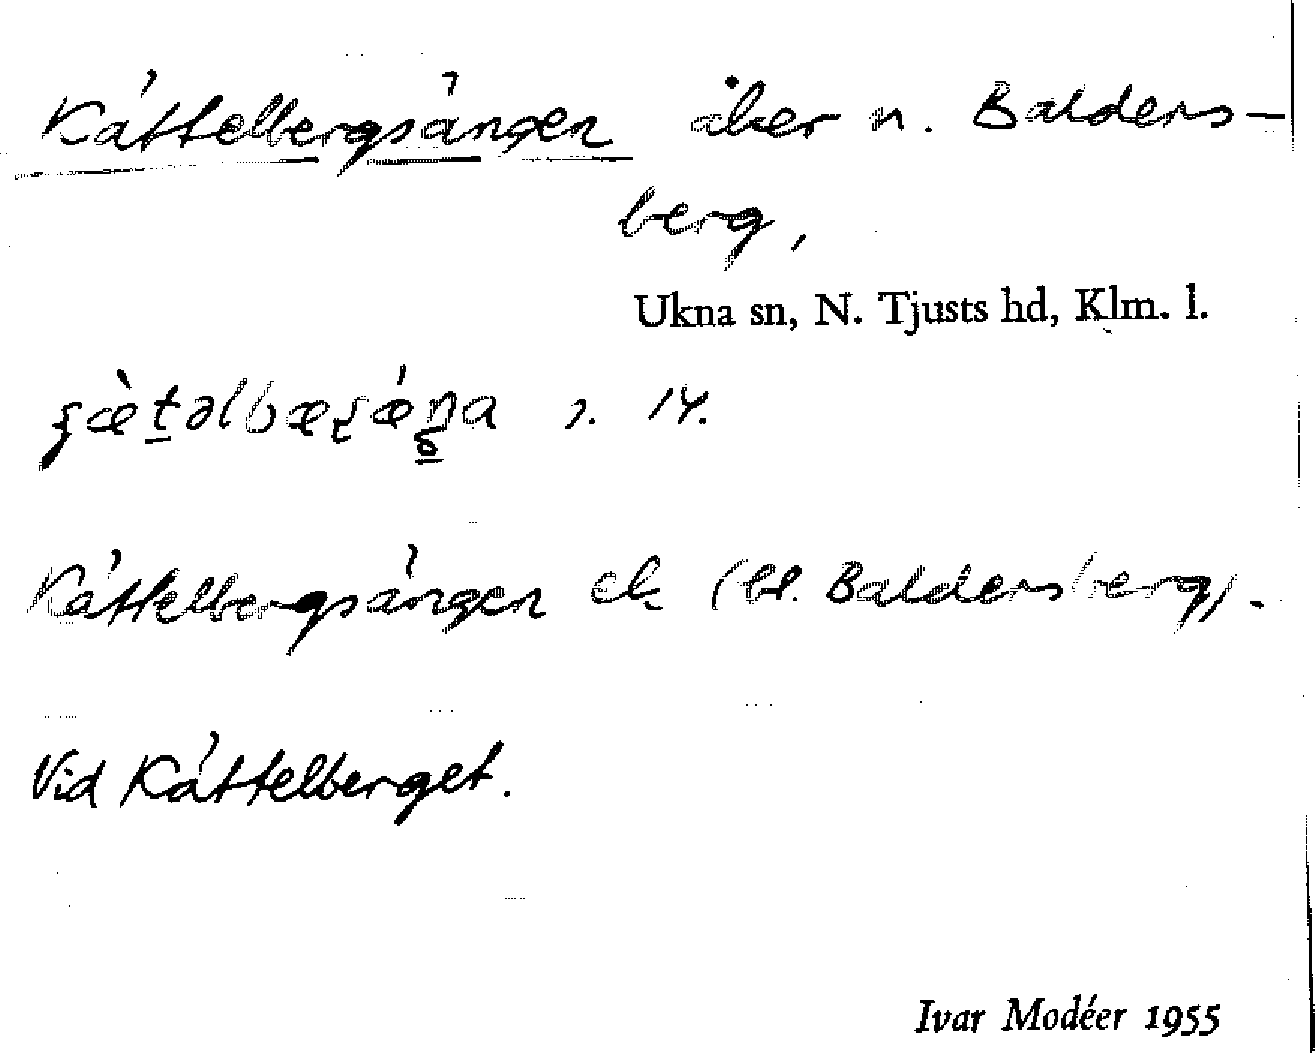 Kättelbergsängen åker n. Balders-
berg,
Ukna sn, N. Tjusts hd, Klm. l.
14.
Kättelbergsängen ek (bl. Baldersberg).
Vid Kättelberget.
Ivar Modéer 1955